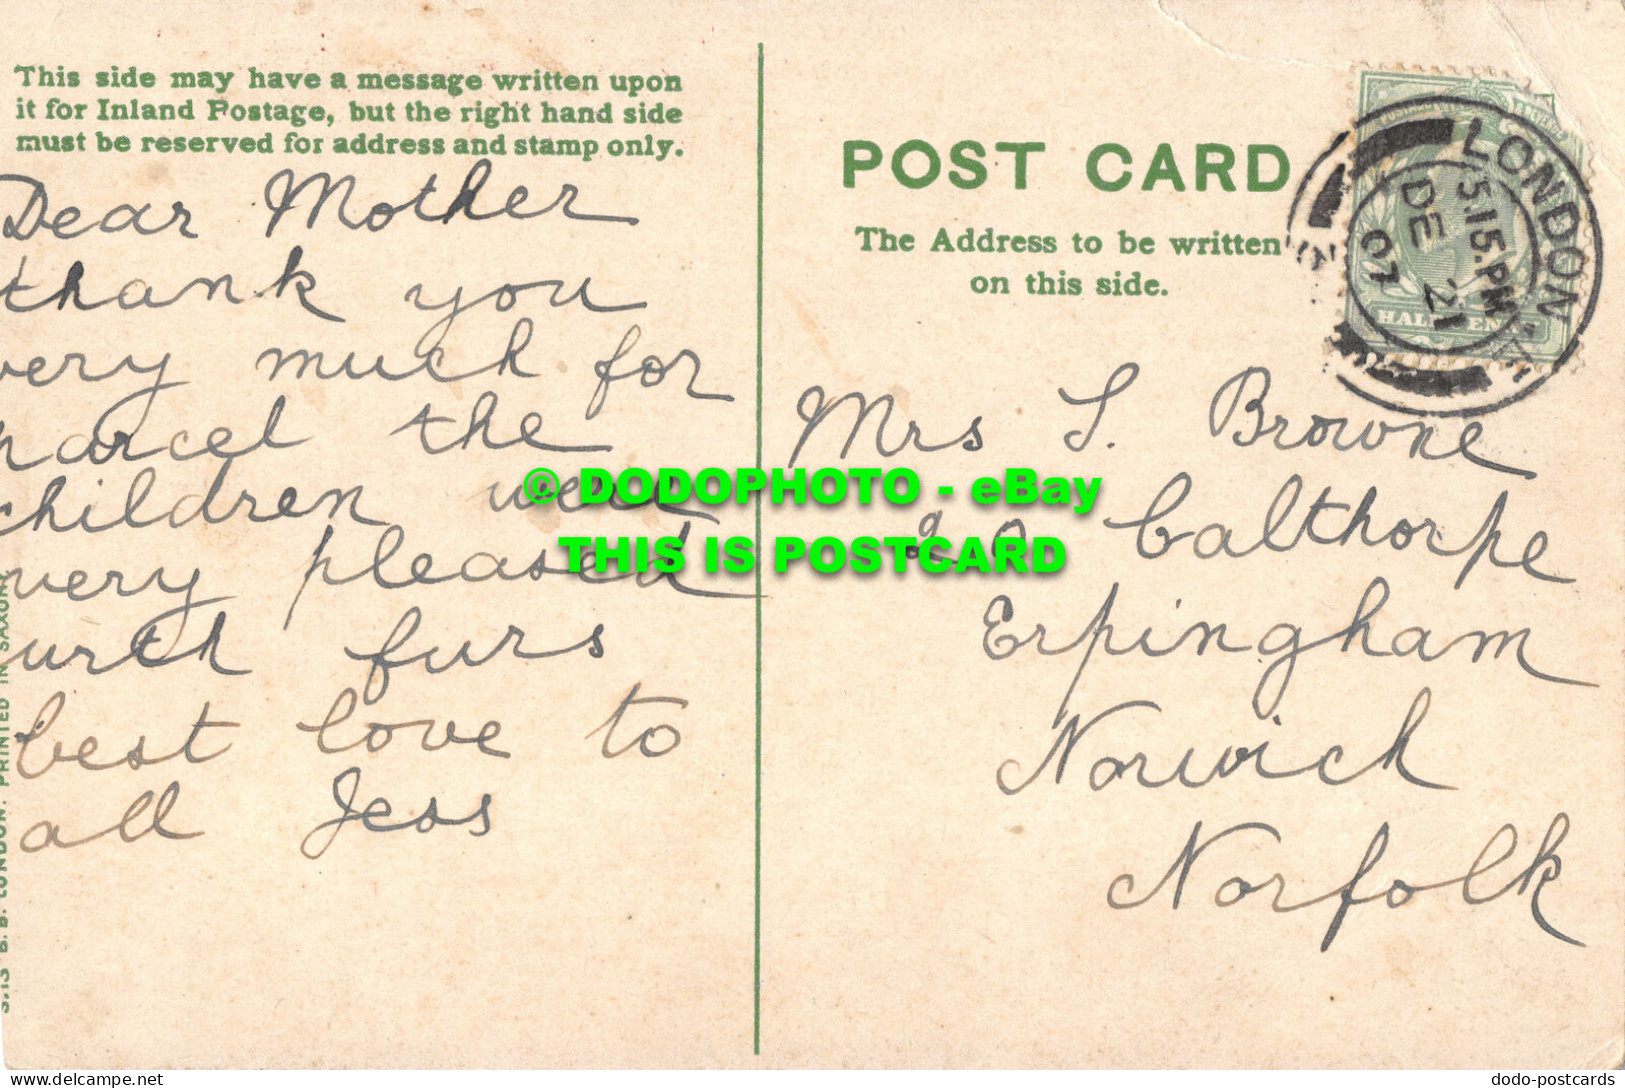 This side may have a message written upon
it for Inland Postage, but the right hand side
must be reserved for address and stamp only.
Dear Mother
thank you
very much for
parcel the
children were
very pleased
with furs
best love to
all Jess
POST CARD
The Address to be written
on this side.
LONDON
5.15.PM
DE 21
07
HALFPENNY
Mrs S. Browne
Calthorpe
Erpingham
Norwich
Norfolk
© DODOPHOTO - eBay
THIS IS POSTCARD
LONDON. PRINTED IN SAXONY.
delcampe.net
dodo-postcards